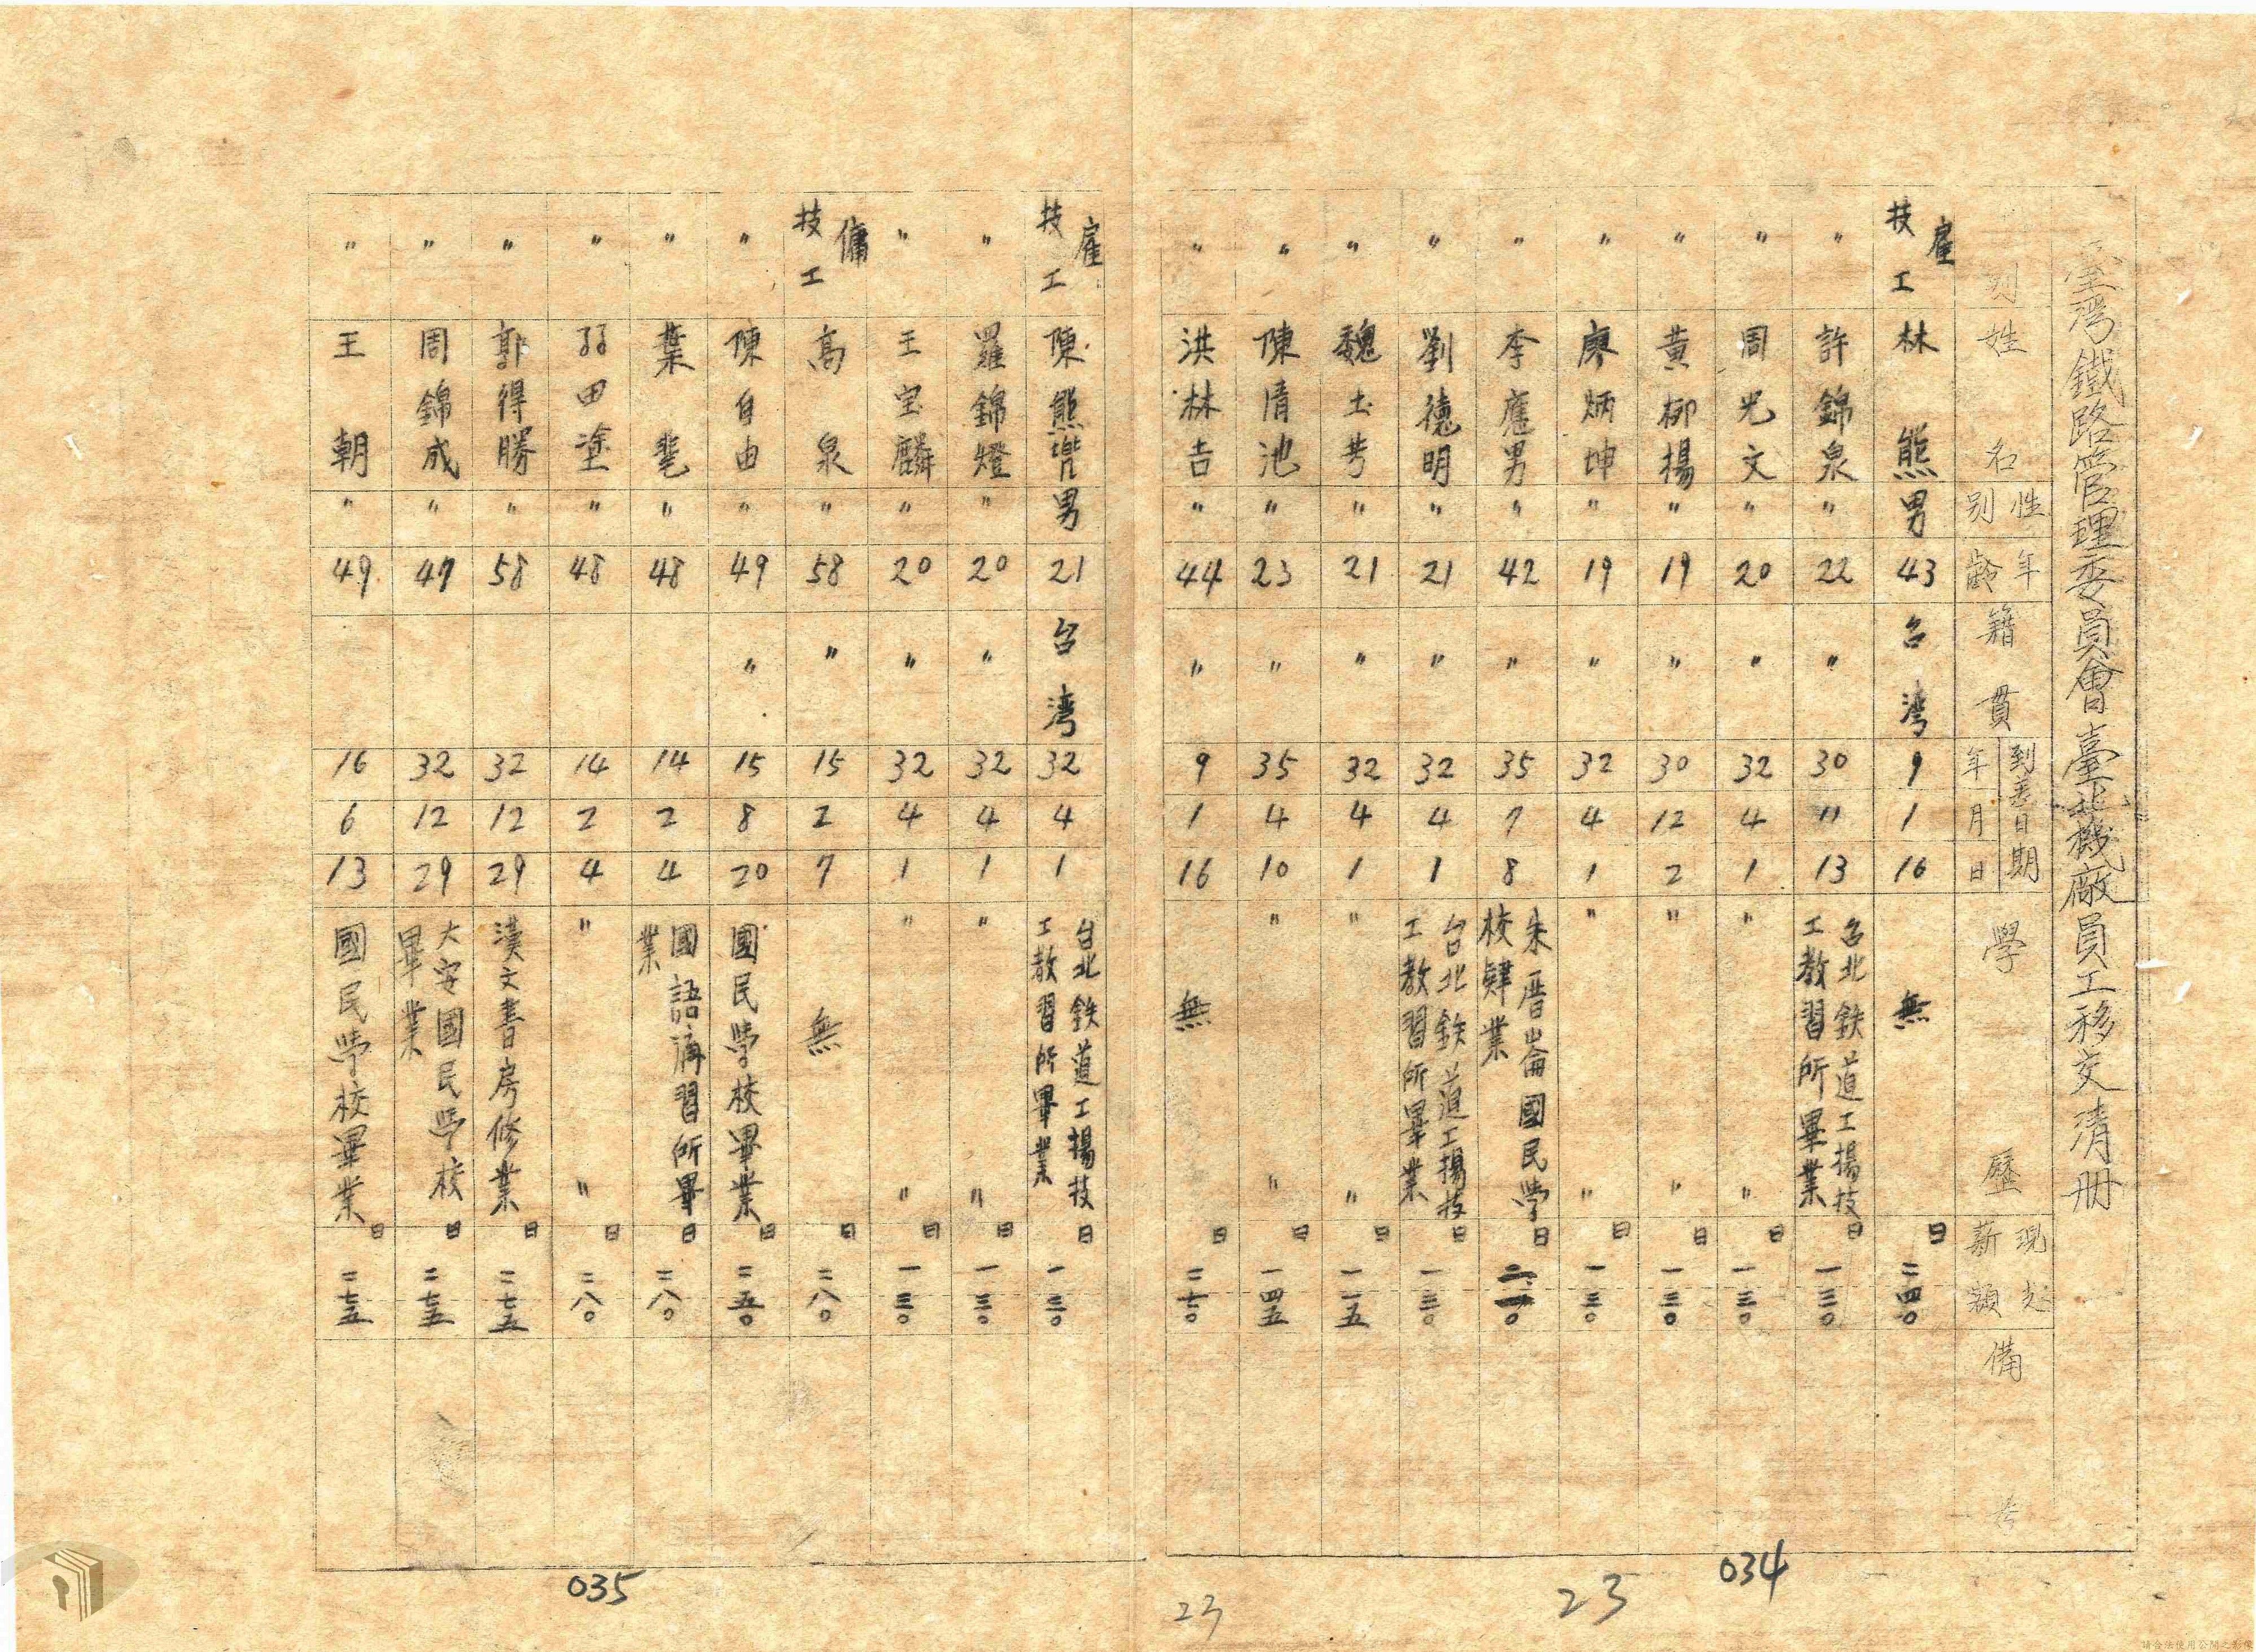 臺灣鐵路管理委員會臺北機廠員工移交清冊
別 姓名 性別 年齡 籍貫 到差日期 年 月 日 學歷 現支薪額 備考
雇 技工 林熊 男 43 台湾 9 1 16 無 日 二四〇
〃 許錦泉 〃 22 〃 30 11 13 台北鉄道工場技工教習所畢業 日 一三〇
〃 周光文 〃 20 〃 32 4 1 〃 〃 日 一三〇
〃 黄柳楊 〃 19 〃 30 12 2 〃 〃 日 一三〇
〃 廖炳坤 〃 19 〃 32 4 1 〃 〃 日 一三〇
〃 李應男 〃 42 〃 35 7 8 朱厝崙國民学校肄業 日
〃 劉德明 〃 21 〃 32 4 1 台北鉄道工場技工教習所畢業 日 一三〇
〃 魏土 〃 21 〃 32 4 1 〃 〃 日 一一五
〃 陳清池 〃 23 〃 35 4 10 〃 〃 日 一四五
〃 洪林吉 〃 44 〃 9 1 16 無 日 二七〇
034
23
23
雇 技工 陳熊 男 21 台湾 32 4 1 台北鉄道工場技工教習所畢業 日 一三〇
〃 羅錦燈 〃 20 〃 32 4 1 〃 〃 日 一三〇
〃 王宝麟 〃 20 〃 32 4 1 〃 〃 日 一三〇
傭 技工 高泉 〃 58 〃 15 2 7 無 日 二八〇
〃 陳自由 〃 49 〃 15 8 20 國民学校畢業 日 二五〇
〃 葉 〃 48 14 2 4 國語講習所畢業 日 二八〇
〃 田塗 〃 48 14 2 4 〃 〃 日 二八〇
〃 郭得勝 〃 58 32 12 29 漢文書房修業 日 二七五
〃 周錦成 〃 47 32 12 29 大安國民学校畢業 日 二七五
〃 王朝 〃 49 16 6 13 國民学校畢業 日 二七五
035